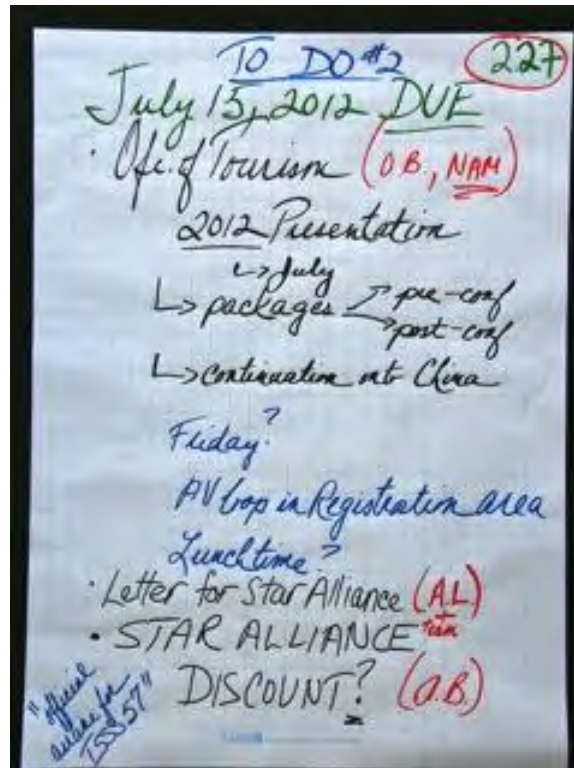 TO DO #2
227
July 15, 2012 DUE
· Ofc. of Tourism (O.B., NAM)
2012 Presentation
↳ July
↳ packages → pre-conf
→ post-conf
↳ continuation onto China
Friday?
AV loop in Registration area
Lunchtime?
· Letter for Star Alliance (A.L.)
· STAR ALLIANCE
DISCOUNT? (O.B.)
"official
airline for
ISS 57"